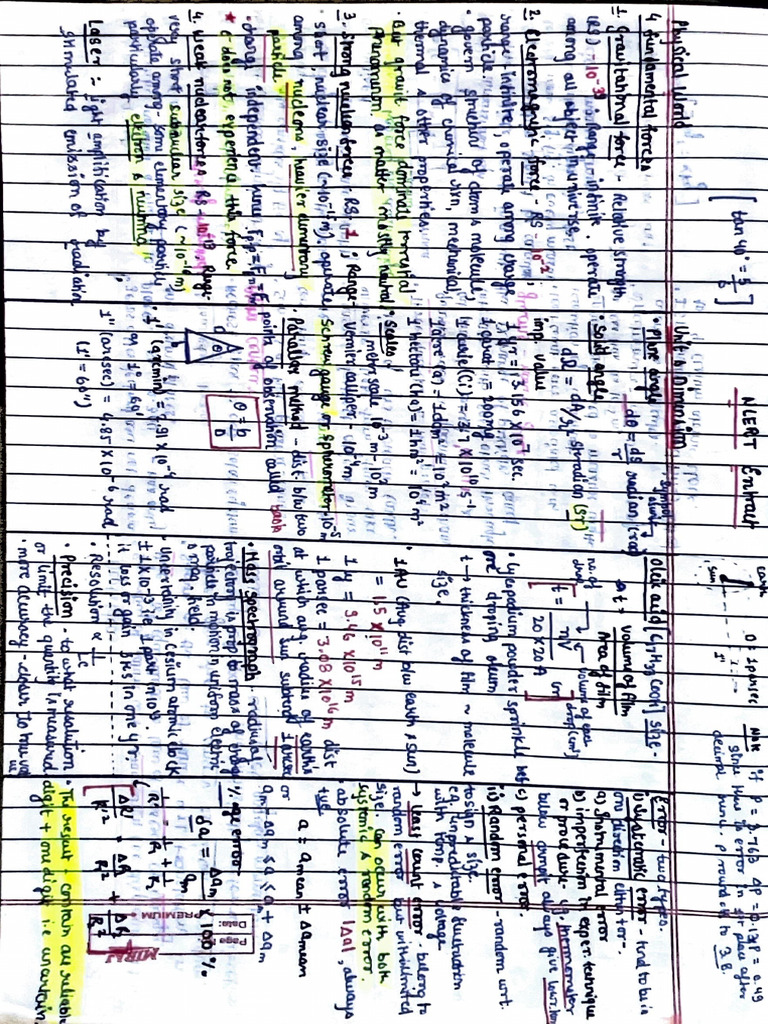 NCERT Extract
[tan 40° = 5/6]
Physical World
4 fundamental forces
1. Gravitational force - Relative strength
(RS) - 10⁻³⁹ range - infinite. operate
among all object in universe.
2. Electromagnetic force - RS - 10⁻²
range infinite, operate among charge
particle.
· govern structure of atoms & molecule,
dynamics of chemical rxn, mechanical,
thermal & other properties.
· But gravit force dominate terrestial
phenomenon as matter mostly neutral
3. Strong nuclear forces - RS, 1, Range-
short, nuclear size (~10⁻¹⁵m). operate
among nucleons, heavier elementary
particle
· charge independent hence Fp-p = F = F
★ e⁻ does not experience this force.
4. Weak nuclear forces RS - 10⁻¹³ Range-
very short subnuclear size (~10⁻¹⁶m)
operate among - some elementary particle
particularly electron & neutrino
Laser :- light amplification by
stimulated emission of radiation
Unit & Dimension
· Plane angle
dθ = ds/r radian (rad)
· Solid angle
dΩ = dA/r² steradian (sr)
imp. value
1 yr = 3.156 × 10⁷ sec.
1 carat = 200mg
1 curie (Ci) = 3.7 × 10¹⁰ s⁻¹
1 are (a) = 1 dam² = 10² m²
1 hectare (ha) = 1 hm² = 10⁴ m²
· Scales
meter scale 10⁻³m - 10²m
Vernier calliper - 10⁻⁴m
Screw gauge or spherometer - 10⁻⁵m
· Parallax method - dist. b/w two
points of observation called basis
θ = b/D
D
θ
b
· 1' (arcmin) = 2.91 × 10⁻⁴ rad
1° = 60'
1" (arcsec) = 4.85 × 10⁻⁶ rad
(1' = 60")
earth
sun
1"
D = 1 parsec
Oleic acid [C₁₇H₃₃COOH] size-
t = Volume of film / Area of film
t = nV / 20×20A cm
no. of drop
Volume of each drop (cm³)
· Lycopodium powder sprinkle before
one droping oleic
t → thickness of film ~ molecule
size.
· 1AU (Avg dist b/w earth & sun)
= 1.5 × 10¹¹m
1 ly = 9.46 × 10¹⁵m
1 parsec = 3.08 × 10¹⁶m dist
at which avg. radius of earth's
orbit around sun subtend 1 arcsec
· Mass spectrograph - radius of
trajectory is prop to mass of charge
particle in motion in uniform electric
& mag. field.
· Uncertainty in cesium atomic clock
±1×10⁻¹³ i.e. 1 part in 10¹³.
it loss or gain 3μs in one yr
· Resolution ∝ 1/LC
· Precision - to what resolution
or limit the quantity is measured
· more accuracy - closer to true val
Note If P = 3.763 ΔP = 0.13
since there is error in 1st place after
decimal hence P round off to 3.8.
Error - two types.
i) Systematic error - tend to be in
one direction either + or -.
a) instrumental error
b) imperfection in exper. technique
or procedure - eg thermometer
below armpit always give low. tem
c) personal error.
ii) Random error - random wrt.
to sign & size.
eg. unpredictable fluctuation
with temp. & voltage
→ Least count error - belong to
random error but within limited
size. can occur with both
systematic & random error.
absolute error |Δa|, always
+ve
a = a mean ± Δa mean
or
am - Δam ≤ a ≤ am + Δam
% age error
δa = Δam/am × 100 %
1/R' = 1/R₁ + 1/R₂
ΔR'/R'² = ΔR₁/R₁² + ΔR₂/R₂²
· The result - contain all reliable
digit + one digit i.e uncertain.
PREMIUM
Date:
Page
MIRAJ